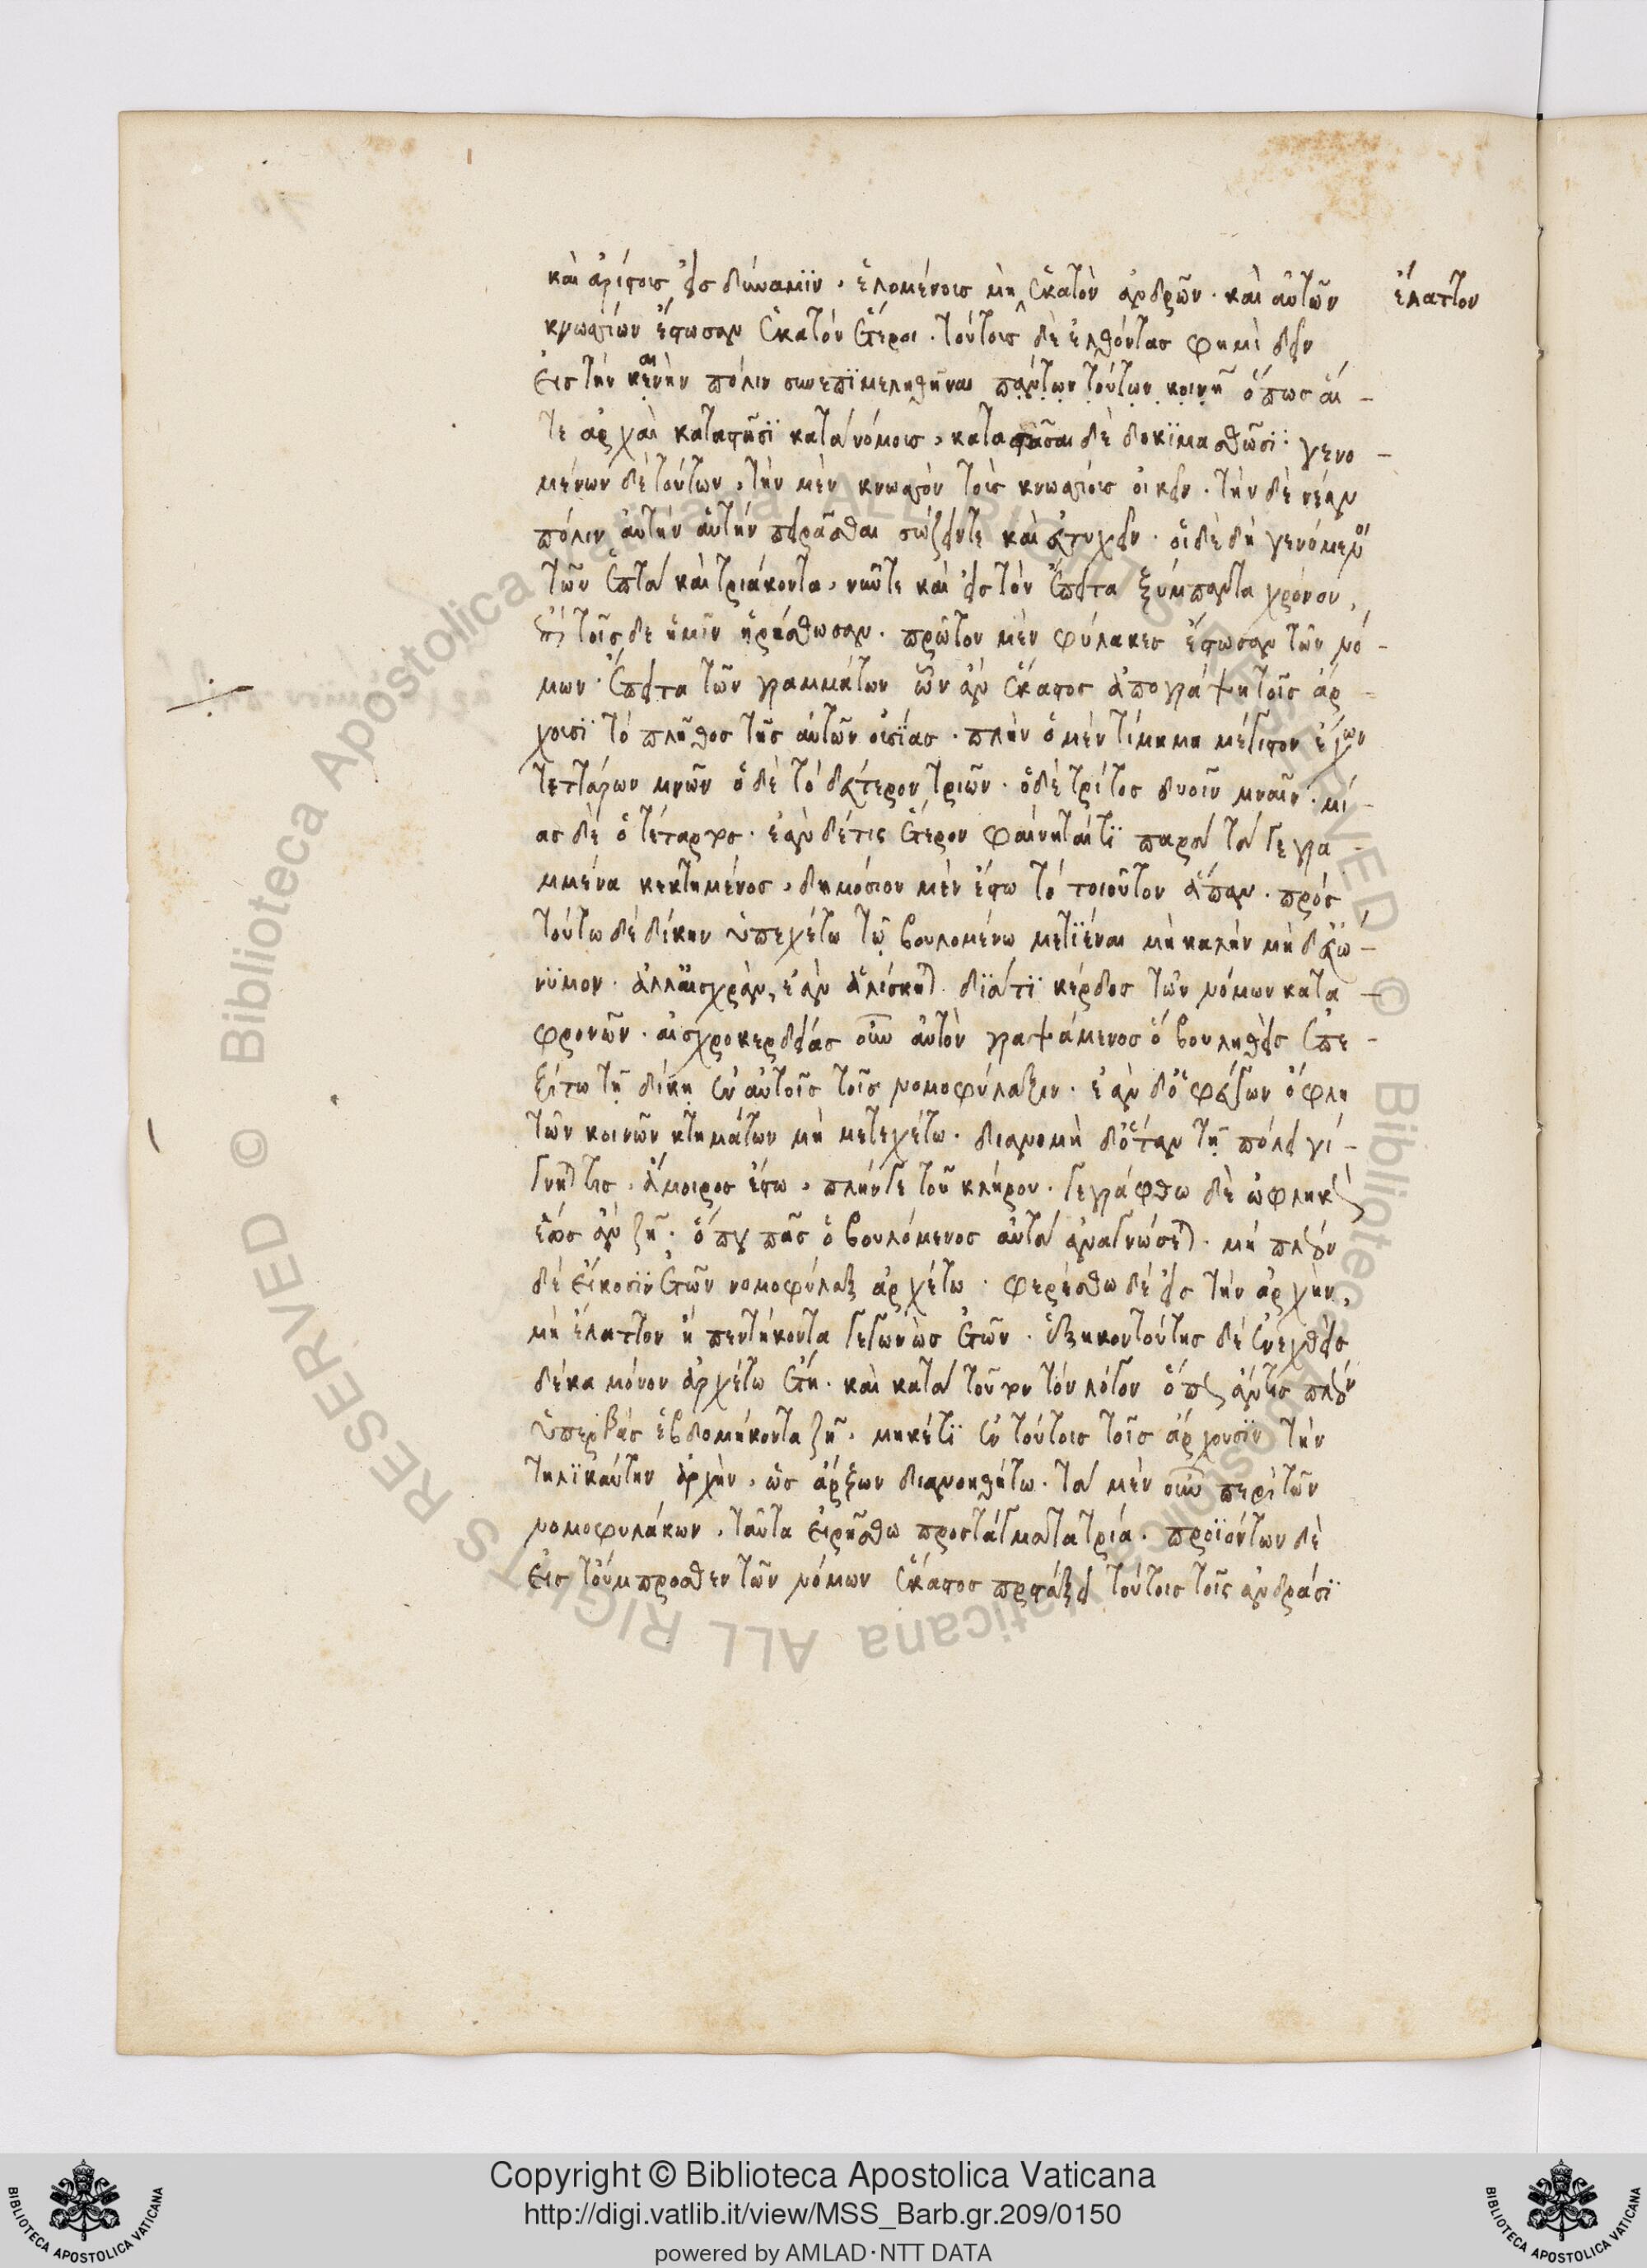 καὶ ἀρίστοις εἰς δύναμϊν · ἑλομένοις μὴ ἑκατὸν ἀνδρῶν · καὶ αὐτῶν
ἔλαττον
κνωσίων ἔστωσαν ἑκατὸν ἕτεροι · τούτοις δὲ ἐλθόντας φημὶ δεῖν
εἰς τὴν καινὴν πόλιν συνεπϊμεληθῆναι πάντων τούτων κοινῇ ὅπως αἵ –
τε ἀρχαὶ καταστῶσϊ κατὰ νόμους, καταστᾶσαι δὲ δοκϊμασθῶσϊ: γενο –
μένων δὲ τούτων, τὴν μὲν κνωσὸν τοὺς κνωσίους οἰκεῖν · τὴν δὲ νέαν
πόλιν αὐτὴν αὑτὴν πειρᾶσθαι σώζειν τε καὶ εὐτυχεῖν · οἱ δὲ δὴ γενόμενοι
τῶν ἑπτὰ καὶ τριάκοντα, νῦν τε καὶ εἰς τὸν ἔπειτα ξύμπαντα χρόνον,
ἐπὶ τοῖσδε ἡμῖν ᾑρήσθωσαν · πρῶτον μὲν φύλακες ἔστωσαν τῶν νό –
μων · ἔπειτα τῶν γραμμάτων ὧν ἂν ἕκαστος ἀπογράψῃ τοῖς ἄρ –
χουσϊ τὸ πλῆθος τῆς αὑτῶν οὐσϊας · πλὴν ὁ μὲν τίμημα μέγιστον ἔχων
τεττάρων μνῶν ὁ δὲ τὸ δεύτερον τριῶν · ὁ δὲ τρίτος δυοῖν μναῖν · μι –
ας δὲ ὁ τέταρτος · ἐὰν δέ τις ἕτερον φαίνηταί τϊ παρὰ τὰ γεγρα –
μμένα κεκτημένος, δημόσιον μὲν ἔστω τὸ τοιοῦτον ἅπαν · πρὸς
τούτω δὲ δίκην ὑπεχέτω τῷ βουλομένω μετϊέναι μὴ καλὴν μὴ δ' εὐώ –
νϋμον · ἀλλ' αἰσχρὰν, ἐὰν ἁλίσκηται διά τϊ κέρδος τῶν νόμων κατα –
φρονῶν · αἰσχροκερδείας οὖν αὐτὸν γραψάμενος ὁ βουληθεὶς ἐπε –
ξίτω τῇ δίκῃ ἐν αὐτοῖς τοῖς νομοφύλαξιν · ἐὰν δ' ὁ φεύγων ὄφλη
τῶν κοινῶν κτημάτων μὴ μετεχέτω · διανομὴ δ' ὅταν τῇ πόλει γί –
γνηταί τις, ἄμοιρος ἔστω, πλήν γε τοῦ κλήρου · γεγράφθω δὲ ὠφληκὼς
ἕως ἂν ζῇ · ὅπου πᾶς ὁ βουλόμενος αὐτὰ ἀναγνώσεται · μὴ πλεῖον
δὲ εἴκοσϊν ἐτῶν νομοφύλαξ ἀρχέτω · φερέσθω δὲ εἰς τὴν ἀρχὴν,
μὴ ἔλαττον ἢ πεντήκοντα γεγωνὼς ἐτῶν · ἑξηκοντούτης δὲ ἐνεχθεὶς
δέκα μόνον ἀρχέτω ἔτη · καὶ κατὰ τοῦτον τὸν λόγον ὅπως ἄν τις πλεῖον
ὑπερβὰς ἑβδομήκοντα ζῇ, μηκέτϊ ἐν τούτοις τοῖς ἄρχουσϊν τὴν
τηλϊκαύτην ἀρχὴν, ὡς ἄρξων διανοηθήτω · τὰ μὲν οὖν περὶ τῶν
νομοφυλάκων, ταῦτα εἰρήσθω προστάγματα τρία · προϊόντων δὲ
εἰς τοὔμπροσθεν τῶν νόμων ἕκαστος προστάξει τούτοις τοῖς ἀνδράσϊ
Copyright © Biblioteca Apostolica Vaticana
http://digi.vatlib.it/view/MSS_Barb.gr.209/0150
powered by AMLAD·NTT DATA
BIBLIOTECA APOSTOLICA VATICANA
BIBLIOTECA APOSTOLICA VATICANA
© Biblioteca Apostolica Vaticana ALL RIGHTS RESERVED © Biblioteca Apostolica Vaticana ALL RIGHTS RESERVED